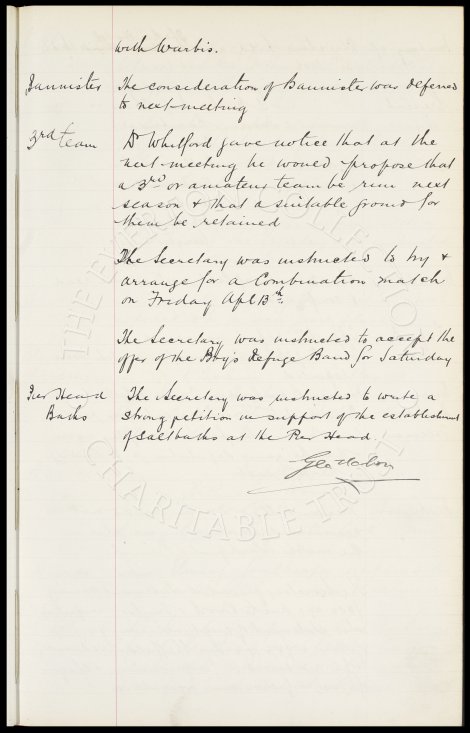 with Warbis.
Bannister The consideration of Bannister was deferred
to next meeting
3rd team Dr Whitford gave notice that at the
next meeting he would propose that
a 3rd or amateur team be run next
season & that a suitable ground for
them be retained
The Secretary was instructed to try &
arrange for a Combination match
on Friday Apl 13th.
The Secretary was instructed to accept the
offer of the Boy's Refuge Band for Saturday
Pier Head The Secretary was instructed to write a
Baths strong petition in support of the establishment
of saltbaths at the Pier Head.
Geo Mahon
THE EVERTON COLLECTION
CHARITABLE TRUST